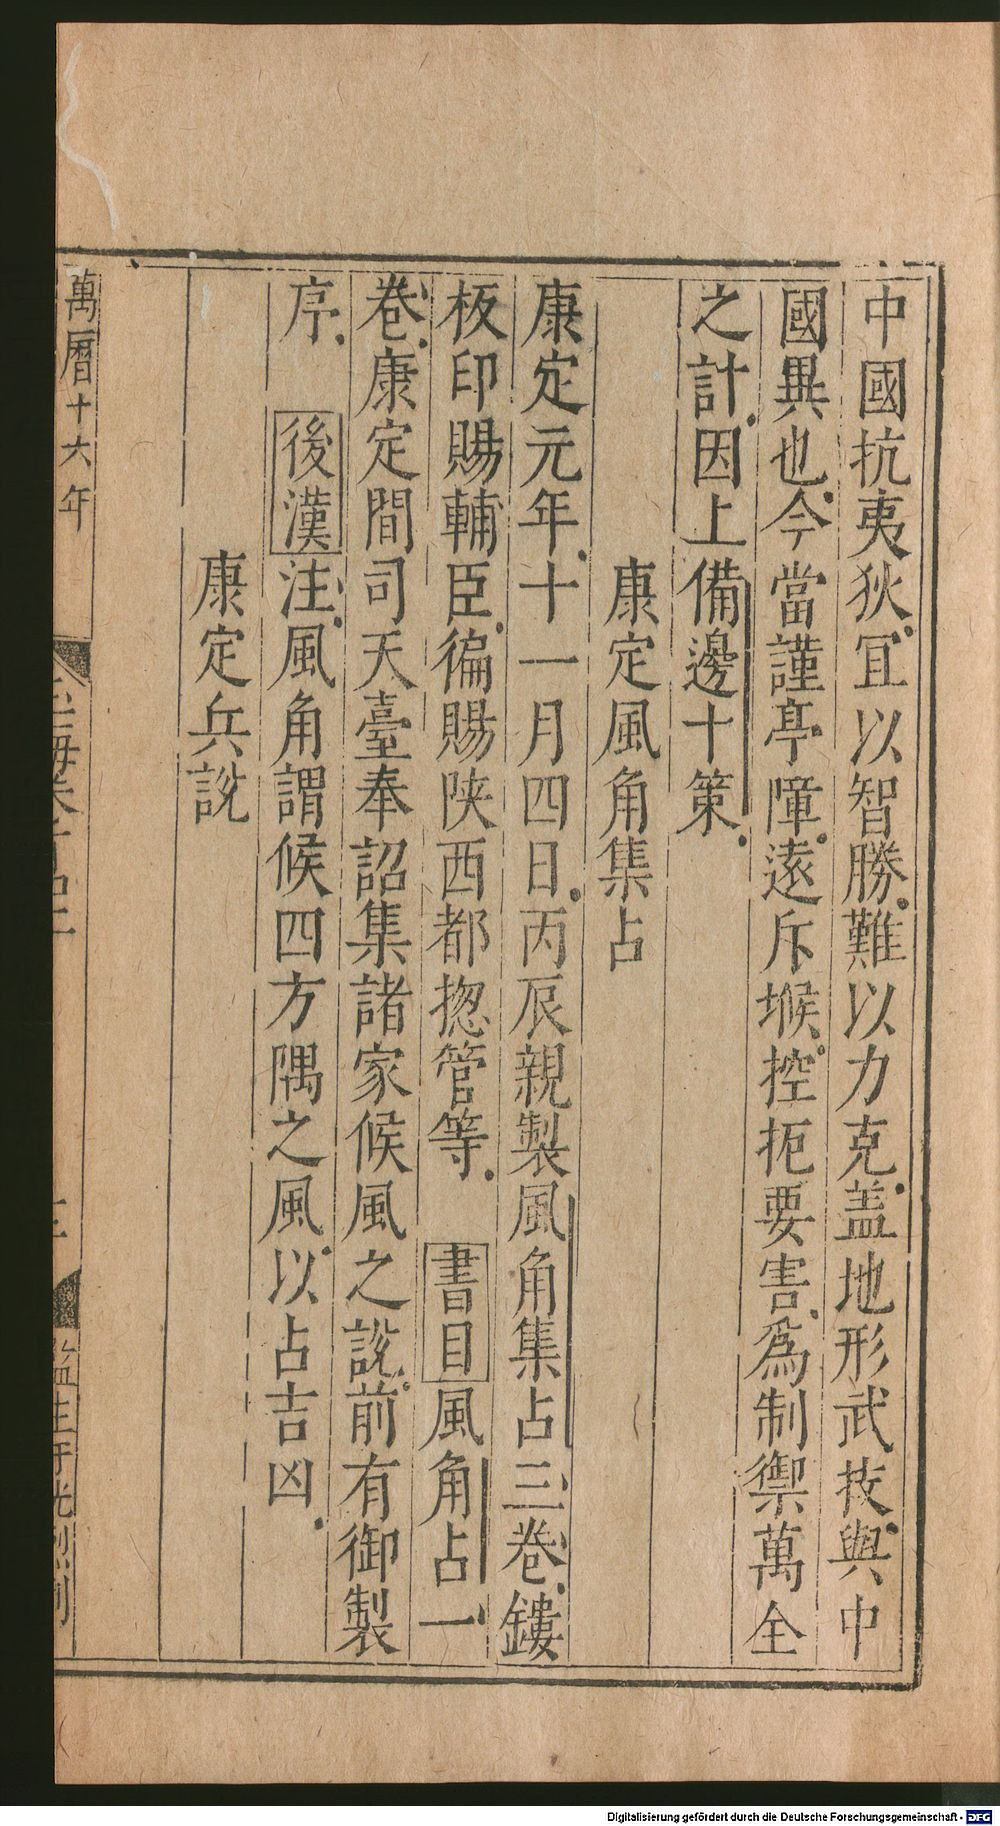 中國抗夷狄冝以智勝難以力克盖地形武技與中
國異也今當謹亭障遠斥堠控扼要害爲制禦萬全
之計因上備邊十策
康定風角集占
康定元年十一月四日丙辰親製風角集占三卷鏤
板印賜輔臣徧賜陝西都揔管等 書目風角占一
卷康定間司天臺奉詔集諸家候風之說前有御製
序 後漢注風角謂候四方隅之風以占吉凶
康定兵說
萬曆十六年
監生
Digitalisierung gefördert durch die Deutsche Forschungsgemeinschaft - DFG